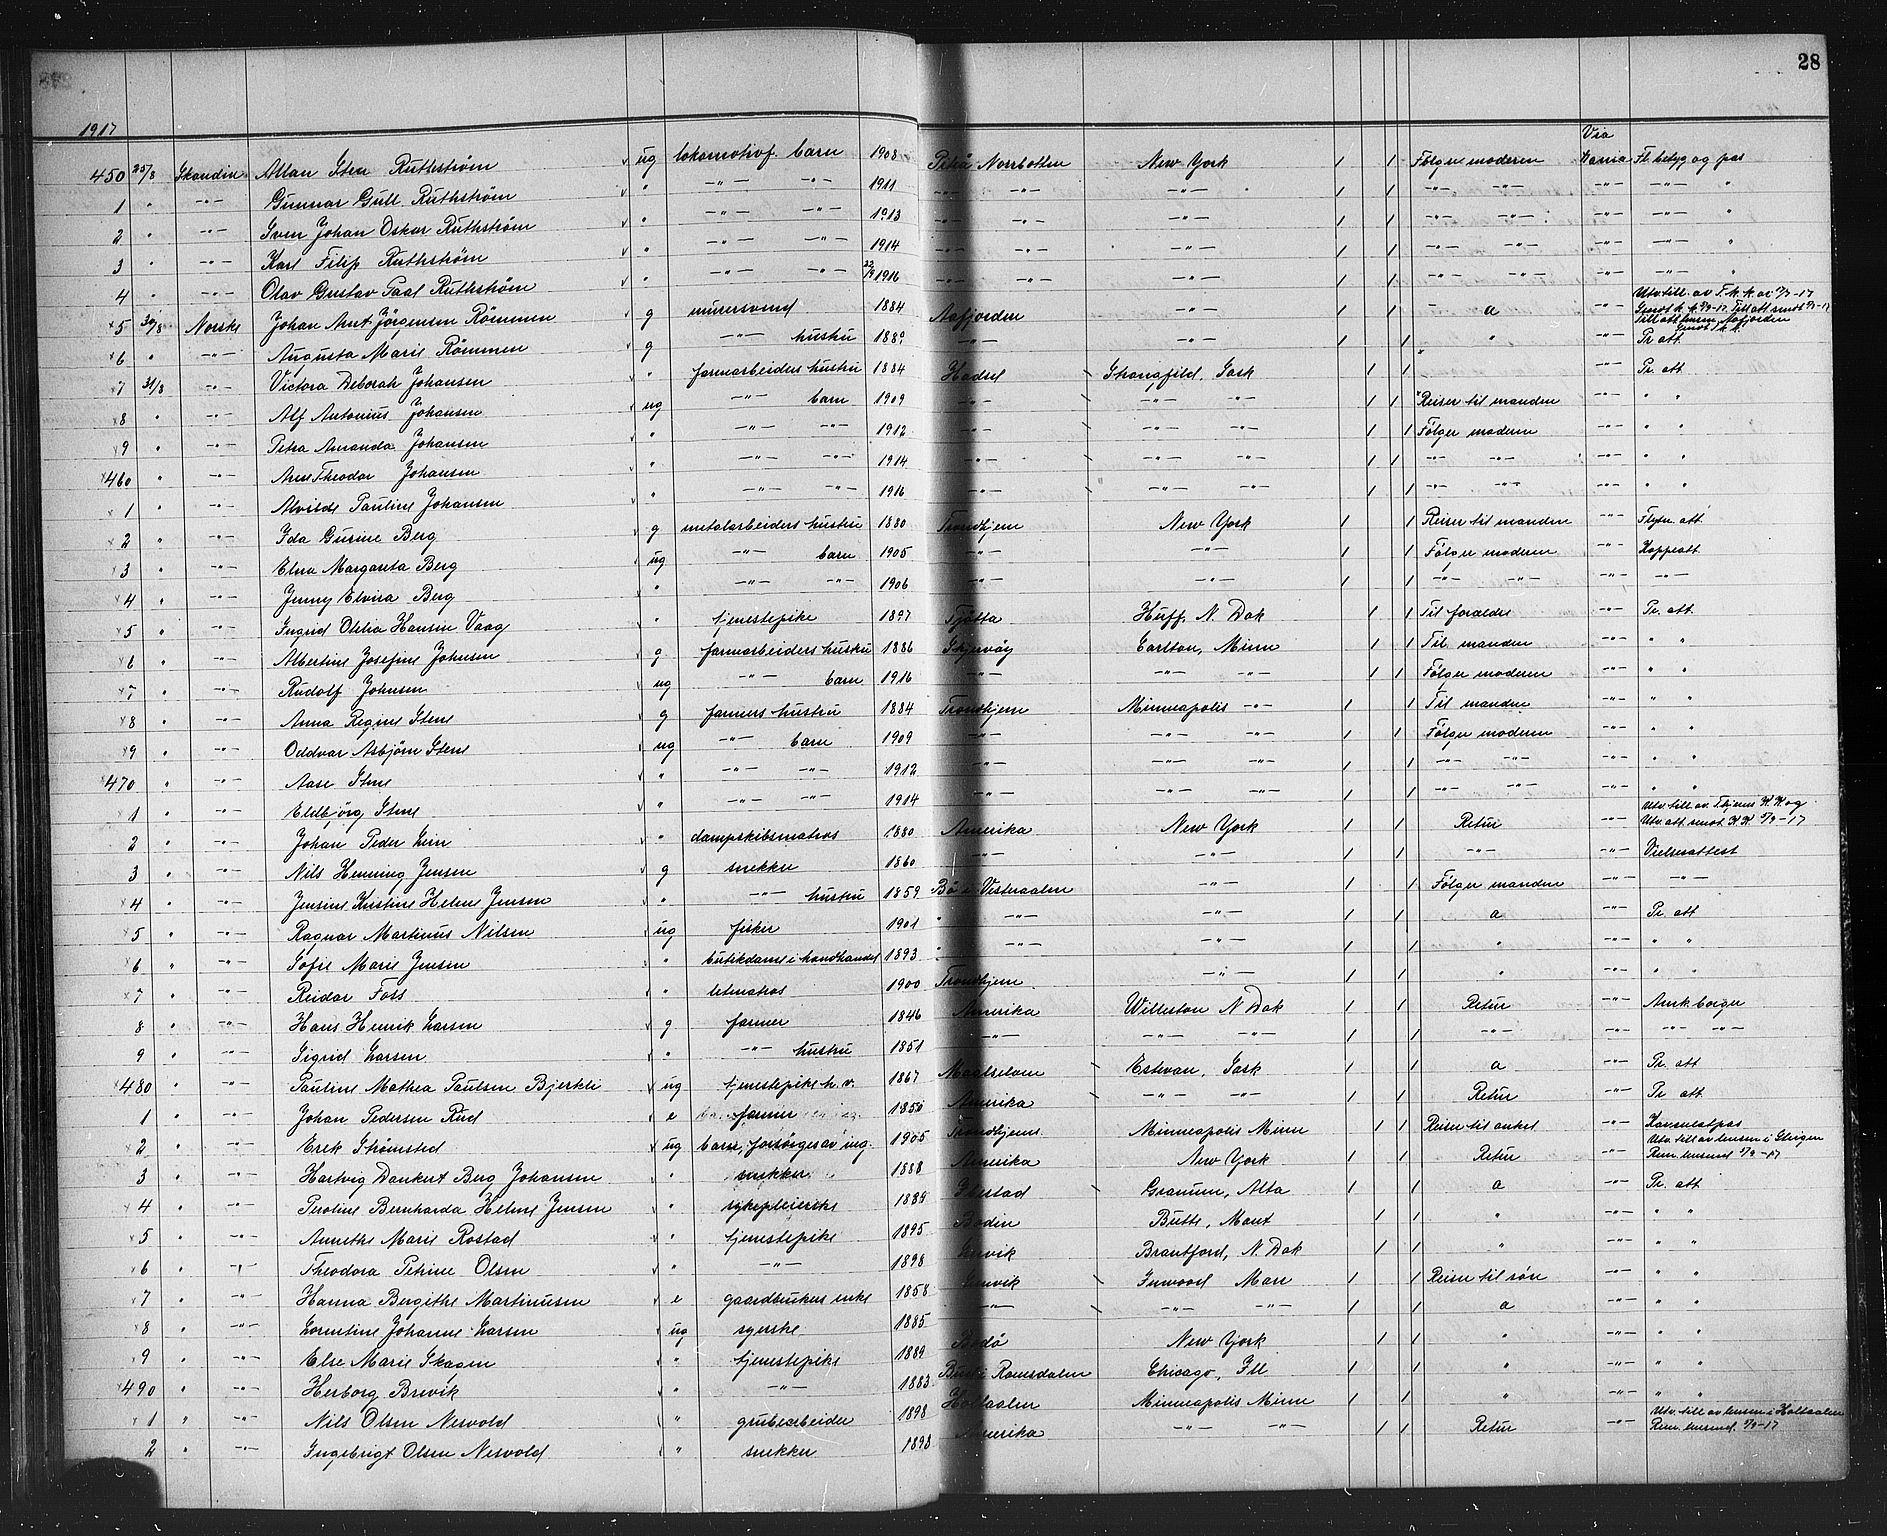 28
1917
Via
450 25/8 Skandin. Allan Sten Ruthström ug lokomotivf. barn 1908 Piteå Norrbotten New York 1 1 Følger moderen Kania Fl. betyg og pas
1 " -"- Gunnar Gull Ruthström " -"- -"- 1911 -"- -"- -"- 1 1 -"- -"- -"- -"- "
2 " -"- Sven Johan Oskar Ruthström " -"- -"- 1913 -"- -"- -"- 1 1 -"- -"- -"- -"- "
3 " -"- Karl Filip Ruthström " -"- -"- 1914 -"- -"- -"- 1 1 -"- -"- -"- -"- "
4 " -"- Olav Gustav Paal Ruthström " -"- -"- 22/9 1916 -"- -"- -"- 1 1 -"- -"- -"- -"- "
5 30/8 Norske Johan Arnt Jörgensen Römmen g murersvend 1884 Aafjorden -"- 1 1 a -"- Utv. till. av T. K. K.
6 " -"- Augusta Marie Römmen g -"- hustru 1889 -"- 1 1 " -"- Pr att.
7 31/8 -"- Victora Deborah Johansen " farmarbeiders hustru 1884 Hadsel Sask 1 1 -"- Pr. att
8 " -"- Alf Antonius Johansen ug -"- barn 1909 -"- -"- -"- 1 1 Reiser til manden -"- " "
9 " -"- Petra Amanda Johansen " -"- -"- 1912 -"- -"- 1 1 Følger moderen -"- " "
460 " -"- Arne Theodor Johansen " -"- -"- 1914 -"- -"- -"- 1 1 -"- -"- -"- " "
1 " -"- Alvilde Pauline Johansen " -"- -"- 1916 -"- -"- -"- 1 1 -"- -"- -"- " "
2 " -"- Ida Gurine Berg g metalarbeiders hustru 1880 Trondhjem New York 1 1 Reiser til manden -"- Flytn. att
3 " -"- Elna Margareta Berg ug -"- barn 1905 -"- -"- 1 1 Følger moderen -"- Koppeatt
4 " -"- Jenny Elvira Berg " -"- -"- 1906 -"- -"- 1 1 -"- -"- -"- -"-
5 " -"- Ingrid Otilia Hansen Vaag " tjenestepike 1897 Tjötta Huff, N. Dak 1 1 Til foraldre -"- Pr. att
6 " -"- Albertine Josefine Johnsen g farmarbeiders hustru 1886 Skjervöy Carlton, Minn 1 1 Til manden -"- " "
7 " -"- Rudolf Johnsen ug -"- barn 1916 -"- -"- -"- 1 1 Følger moderen -"- " "
8 " -"- Anna Regine Stene g farmers hustru 1884 Trondhjem Minneapolis -"- 1 1 Til manden -"- " "
9 " -"- Oddvar Asbjörn Stene ug -"- barn 1909 -"- -"- -"- 1 1 Følger moderen -"- " "
470 " -"- Aase Stene " -"- -"- 1912 -"- -"- -"- 1 1 -"- -"- -"- " "
1 " -"- Eldbjörg Stene " -"- -"- 1914 -"- -"- -"- 1 1 -"- -"- -"- " "
2 " -"- Johan Peder Lein " dampskibsmatros 1880 Amerika New York 1 1 Retur -"- Utv. till. av Thjems K. K og
3 " -"- Nils Henning Jensen g snekker 1860 -"- -"- 1 1 -"- -"- Vielsesattest
4 " -"- Jensine Kristine Helene Jensen " -"- hustru 1859 Bö i Vesteraalen -"- 1 1 Følger manden -"- -"-
5 " -"- Ragnar Martinus Nilsen ug fisker 1901 " -"- -"- 1 1 a -"- Pr. att
6 " -"- Sofie Marie Jensen " butikdame i handhandel 1893 " -"- -"- 1 1 " -"- " "
7 " -"- Reidar Foss " letmatros 1900 Trondhjem -"- 1 1 " -"- " "
8 " -"- Hans Henrik Larsen g farmer 1846 Amerika Williston N Dak 1 1 Retur -"- Amk. borger
9 " -"- Sigrid Larsen " -"- hustru 1851 -"- -"- -"- 1 1 -"- -"- -"-
480 " -"- Pauline Mathea Paulsen Bjerkli ug tjenestepike h. v. 1867 Maalselven Estevan, Sask 1 1 a -"- Pr. att
1 " -"- Johan Pedersen Rud e farmer 1850 Amerika -"- -"- 1 1 Retur -"- Pr. att
2 " -"- Erek Strömsted ug barn, forsörges av ing. 1905 Trondhjem Minneapolis Minn 1 1 Reiser til onkel -"- Konsulatpas
3 " -"- Hartvig Dankert Berg Johansen " snekker 1888 Amerika New York 1 1 Retur -"- Utv. till av lensm i
4 " -"- Peroline Bernharda Helene Jensen " sykepleierske 1889 Ibestad Granum, Alta 1 1 a -"- Pr. att
5 " -"- Annethe Marie Rostad " tjenestepike 1895 Bodin Butte, Mont 1 1 " -"- " "
6 " -"- Theodora Petrine Olsen " -"- 1898 Brantford, N. Dak 1 1 " -"- " "
7 " -"- Hanna Bergithe Martinusen e gaardbrukers enke 1858 Inwood Man 1 1 Reiser til sön -"- " "
8 " -"- Lorentine Johanne Larsen ug syerske 1885 -"- -"- -"- 1 1 a -"- " "
9 " -"- Else Marie Skagen " tjenestepike 1889 Bodö New York 1 1 " -"- " "
490 " -"- Herborg Brevik " -"- 1883 Romsdalen Chicago, Ill 1 1 " -"- " "
1 " -"- Nils Olsen Nesvold " grubearbeider 1898 Holtaalen Minneapolis Minn 1 1 " -"- " "
2 " -"- Ingebrigt Olsen Nesvold " snekker 1898 Amerika -"- -"- 1 1 Retur -"- Utv. till av lensm i Holtaalen